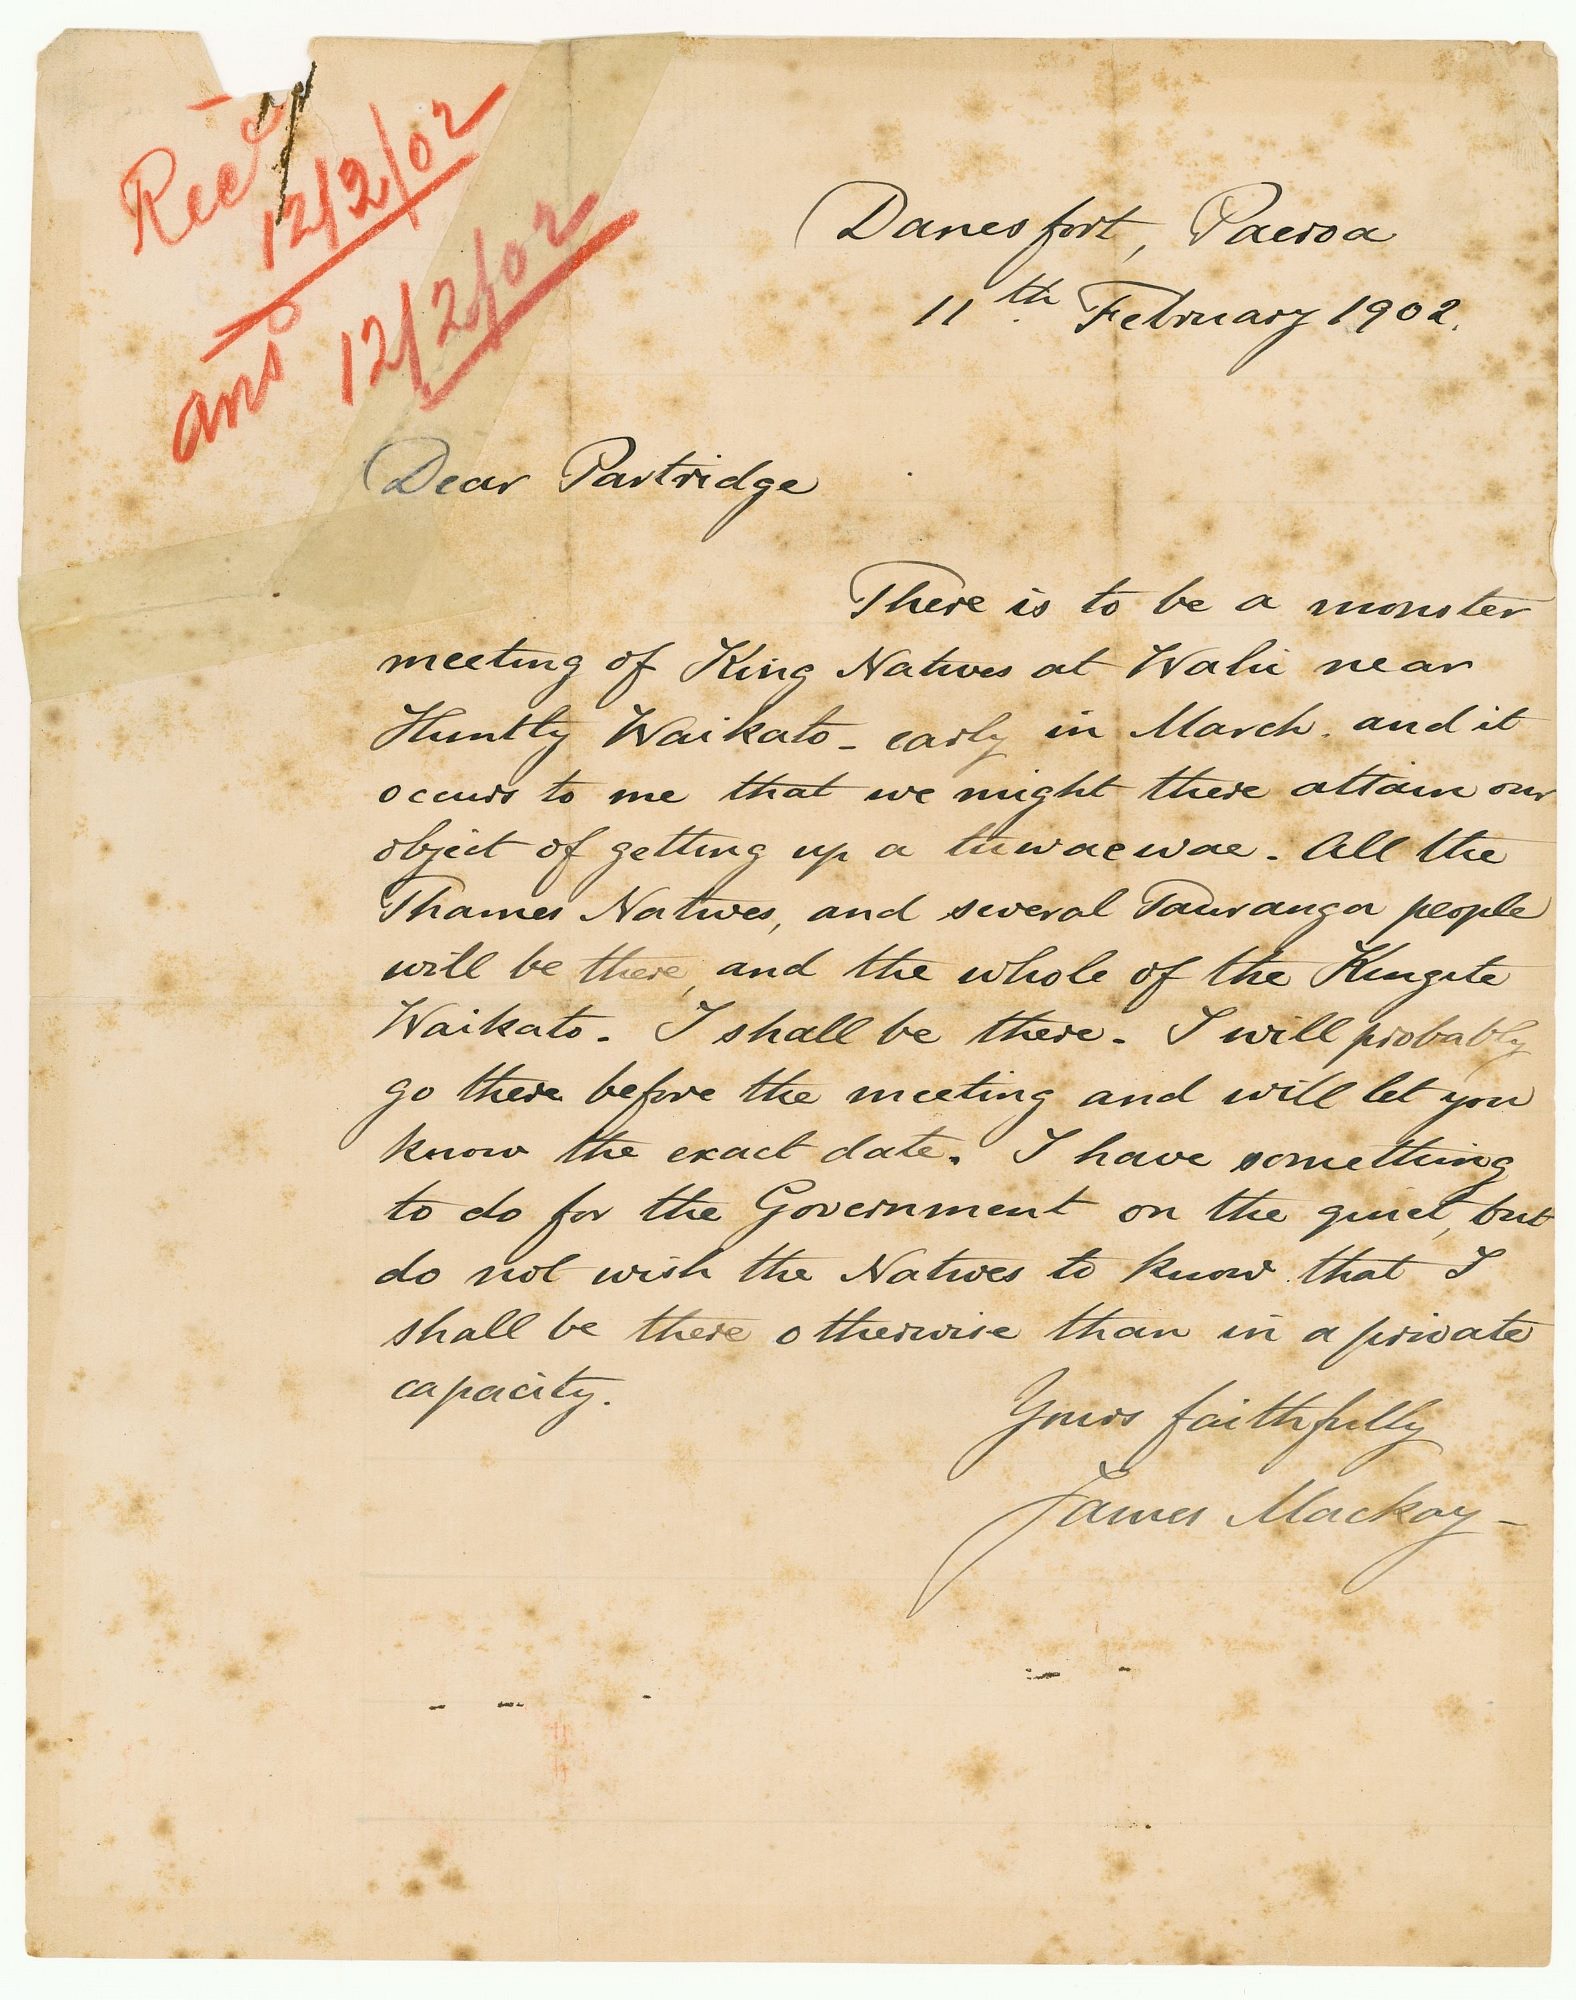 Recd
12/2/02
ansd
12/2/02
Danesfort, Paeroa
11th February 1902.
Dear Partridge
There is to be a monster
meeting of King Natives at Wahi near
Huntly Waikato - early in March. and it
occurs to me that we might there attain our
object of getting up a tuwaewae. All the
Thames Natives, and several Tauranga people
will be there, and the whole of the Kingite
Waikato. I shall be there. I will probably
go there before the meeting and will let you
know the exact date. I have something
to do for the Government on the quiet, but
do not wish the Natives to know that I
shall be there otherwise than in a private
capacity.
Yours faithfully
James Mackay -